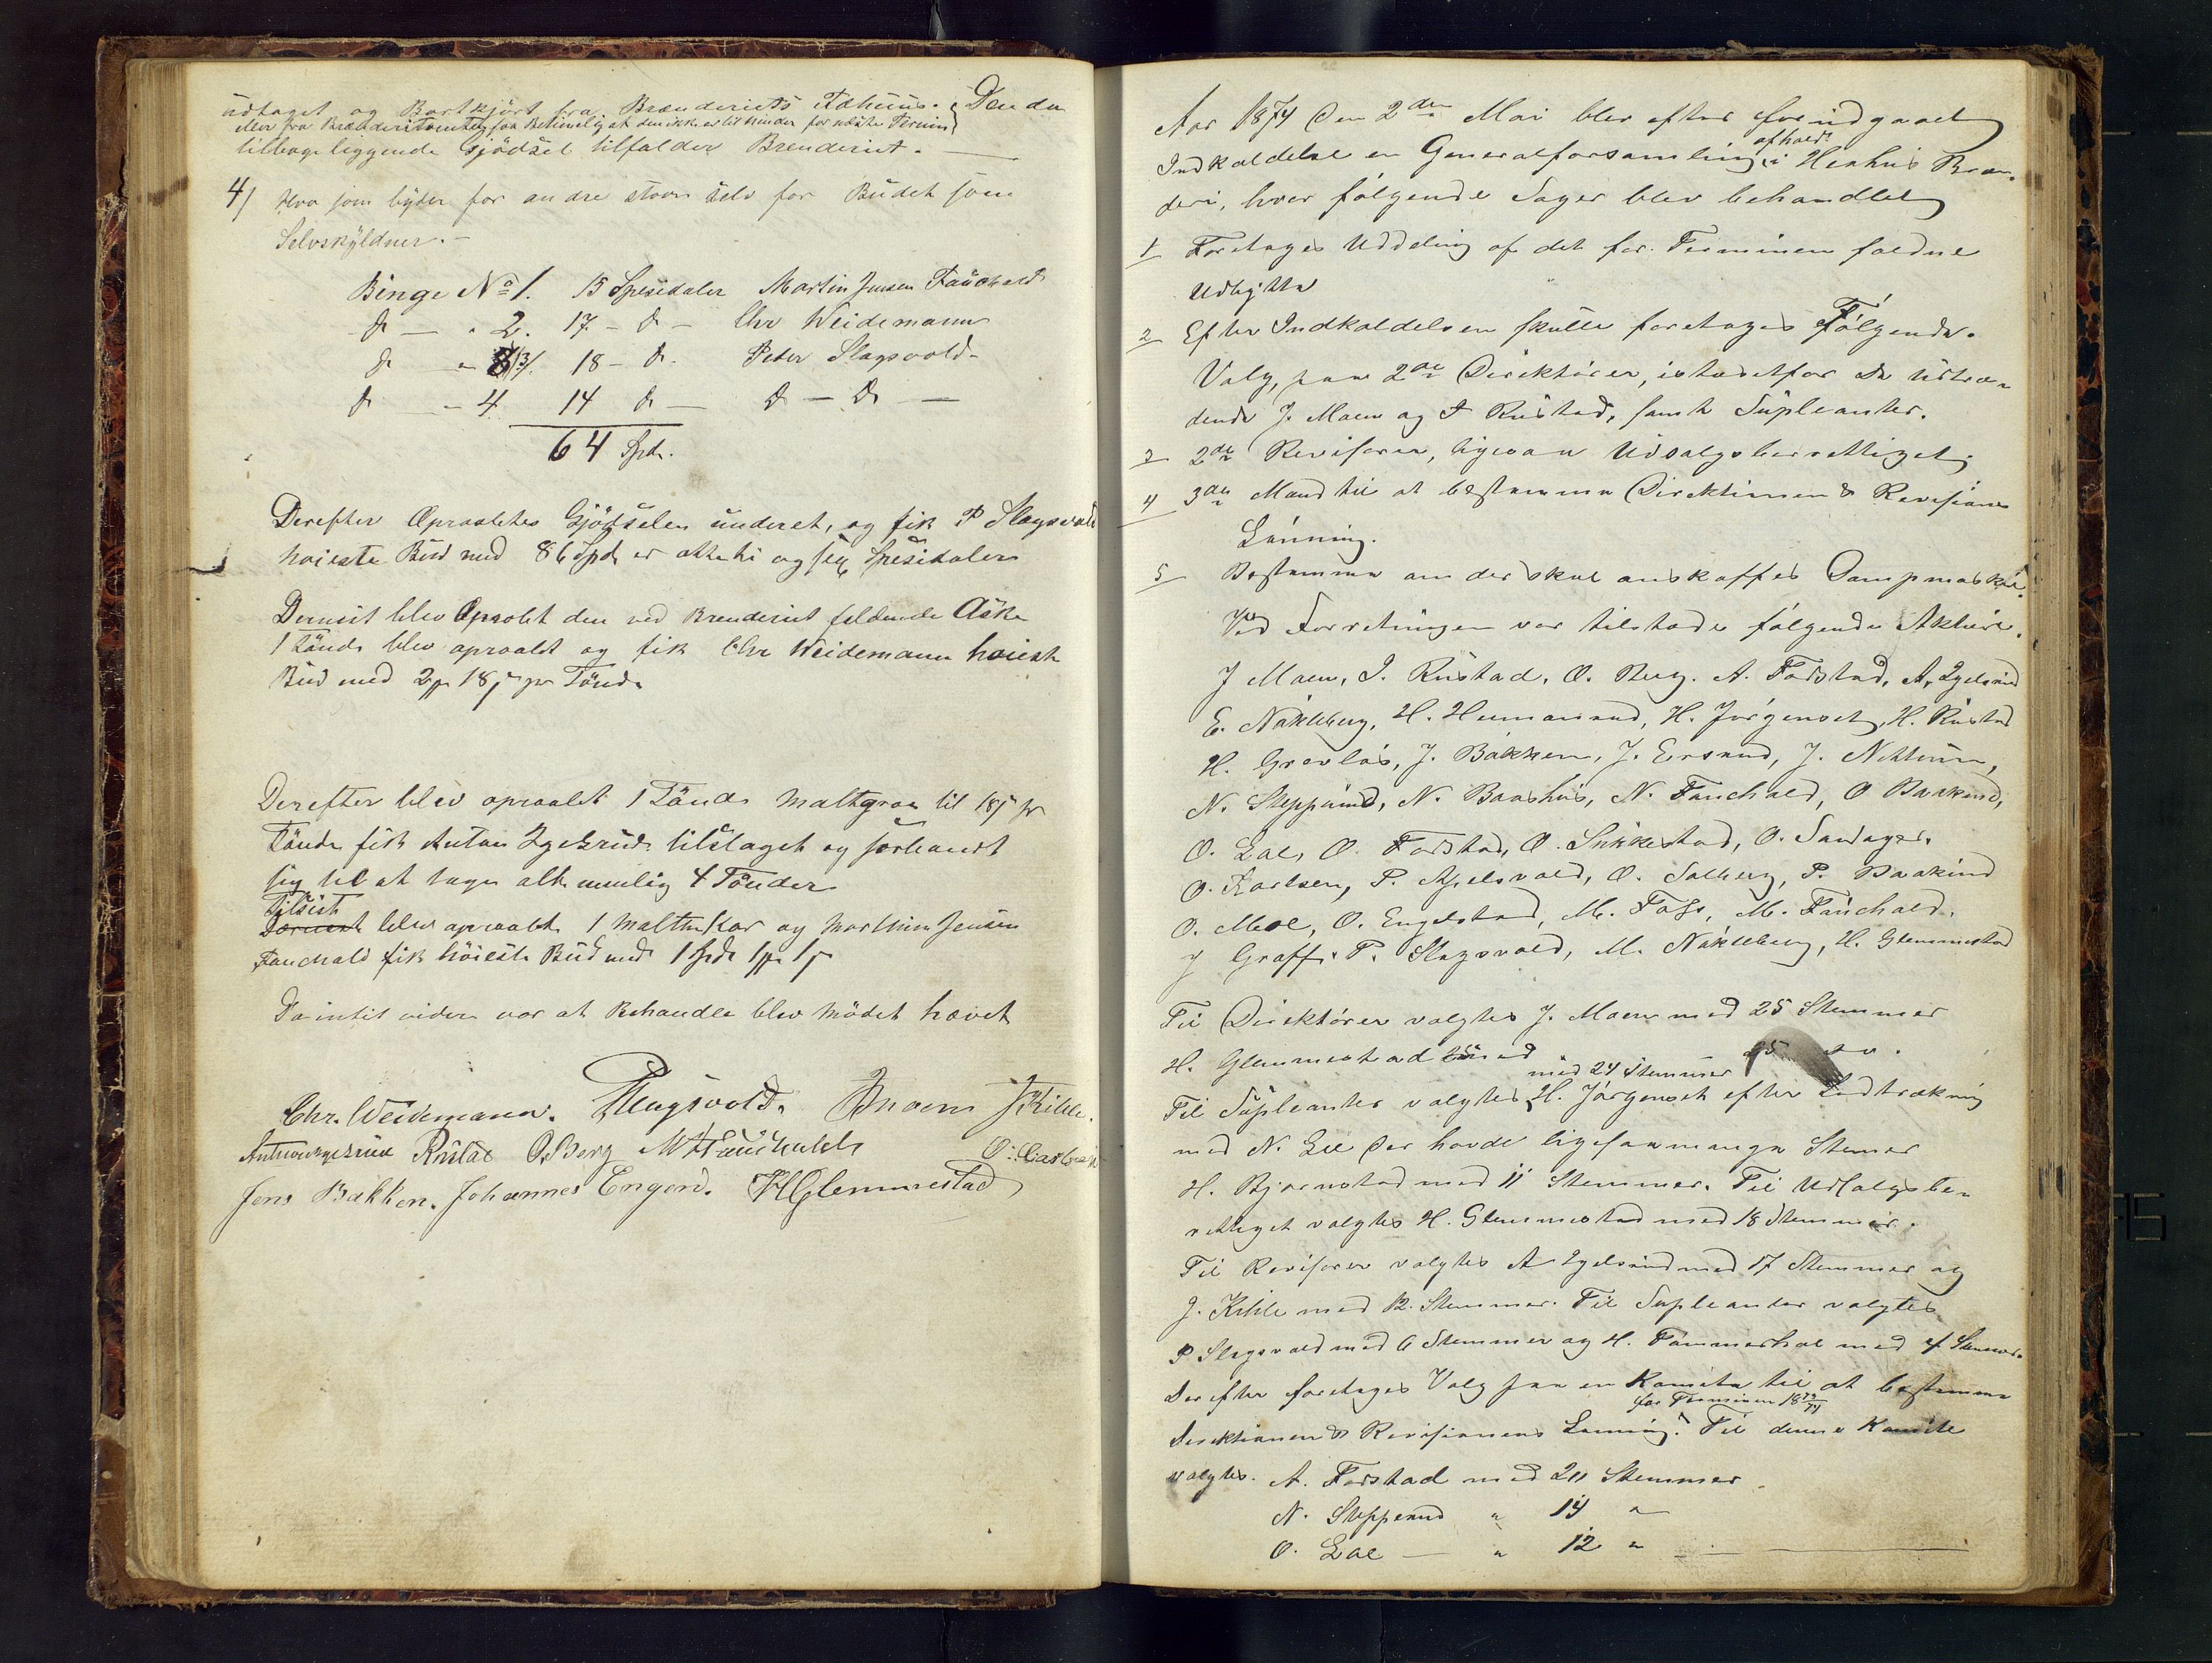 udtaget og Bortkjört fra Brænderiets Fæhuus. Den da
eller fra Brænderitomten saa Betimelig at den ikke er til hinder for næste Termin
tilbage liggende Gjödsel tilfalder Brenderiet.
4) Hvo som byder for andre staar selv for Budet som
Selvskyldner.
Binge No 1. 15 Spesidaler Martin Jensen Fauchald
do - " 2. 17 - do - Chr Weidemann
do - " 3/. 18 - do. Peter Slagsvold
do - " 4 14 do - do - do -
64 Spd.
Derefter Opraabtes Gjödselen underet, og fik P Slagsvold
høieste Bud med 86 Spd er otteti og sex Spesidaler
Dernest blev Opraabt den ved Brenderiet faldende Aske
1 Tönde blev opraabt og fik Chr Weidemann høieste
Bud med 2 18 pr Tönde
Derefter blev opraabt 1 Tönde Maltgroe til 18 pr
Tönde fik Anton Egelsrud tilslaget og forbandt
sig til at tage alt nemlig 4 Tönder
Tilsist
Dernæst blev opraabt 1 Malttin Kar og Marthin Jensen
Fauchald fik höieste Bud med 1 Spd 1 1
Da intet videre var at Behandle blev Mödet hævet
Chr. Weidemann. P Slagsvold. J Moen J Kihle.
Anton Egelsrud Rustad O. Berg M H Fauchald O. Carlsen
Jens Bakken. Johannes Engen. H Glemmestad
Aar 1874 Den 2den Mai blev efter forudgaaet
afholdt
Indkaldelse en Generalforsamling i Henhus Bræn-
deri, hvor følgende Sager blev behandlet
1 Foretages Uddeling af det for Terminen faldne
Udbytte
2 Efter Indkaldelsen skulle foretages Følgende.
Valg, paa 2de Direktører, istedetfor de Udtræ-
dende J. Moen og I Rustad, samt Supleanter.
3 2de Revisorer, ligesaa Udsalgsberettiget
4 3de Mand til at bestemme Direktionen & Revisionens
Lønning.
5 Bestemme om der skal anskaffes Dampmaskin.
Ved Forretningen var tilstede følgende Aktiere.
J Moen, I. Rustad, O. Berg. A. Fodstad, A. Egelsrud
E. Nøkleberg, H. Hemmerud, H. Jørgenset, H. Rustad
H. Grevløs, J. Bakken, J. Ersrud, J. Nettum,
N. Stepperud, N. Baashus, N. Fauchald, O Baakind,
O. Lae, O. Fodstad, O. Snikkestad, O. Sandager.
O. Karlsen, P. Apelsvold, O. Solberg, P. Baakind
O. Moe, O. Engelstad, M. Foss, M. Fauchald.
J Graff. P. Slagsvold, M. Nøkleberg, H. Glemmestad
Til Direktører valgtes J. Moen med 25 Stemmer
H. Glemmestad med 25 do.
med 24 Stemmer
Til Supleanter valgtes H. Jørgenset efter Lodtrækning
med N. Lie der havde ligesaamange Stemer
H. Bjørnstad med 11 Stemmer. Til Udsalgsbe-
rettiget valgtes H. Glemmestad med 18 Stemmer.
Til Revisorer valgtes A Egelsrud med 17 Stemmer og
J. Kihle med 12. Stemmer. Til Supleanter valgtes
P Slagsvold med 6 Stemmer og H. Tømmerhol med 4 Stemmer.
Derefter foretages Valg paa en Komite til at bestemme
for Terminen 1873/74
Direktionen & Revisionens Lønning. Til denne Komite
valgtes. A. Fodstad med 20 Stemmer
N. Stepperud " 14 "
O. Lae - " 12 "